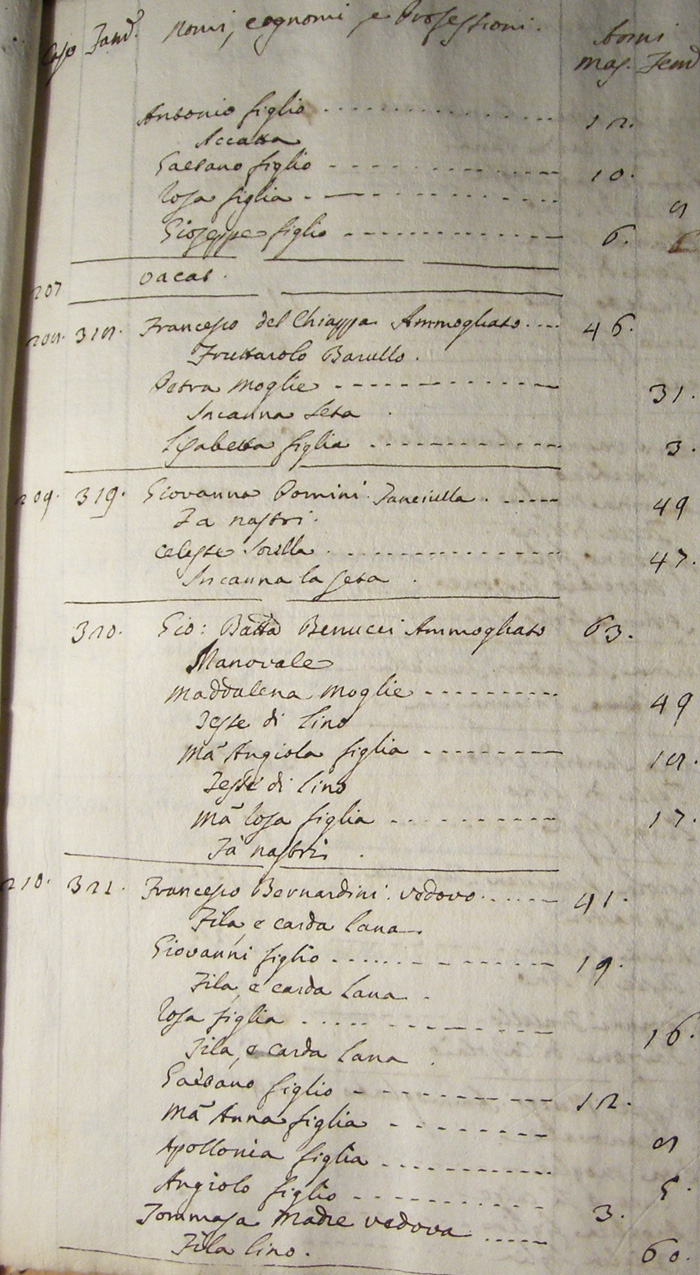 Case Fam.e Nomi, cognomi, e Professioni. Anni
mas. Fem.
Antonio figlio 12.
Accatta
Gaetano figlio 10.
Rosa figlia 8
Gioseppe figlio 6.
207 vacat.
208. 318. Francesco del Chiappa Ammogliato 46.
Fruttarolo Barullo.
Petra Moglie 31.
Incanna Seta
Elisabetta figlia 3.
209. 319. Giovanna Pomini. Fanciulla. 49
Fa nastri.
Celeste Sorella. 47.
Incanna la seta.
320. Gio: Batta Benucci Ammogliato 63.
Manovale
Maddalena Moglie 49
Tesse di lino
Mã Angiola figlia 18.
Tesse di lino
Mã Rosa figlia 17.
Fà nastri.
210. 321. Francesco Bernardini. vedovo. 41.
Fila, e carda lana.
Giovanni figlio 19.
Fila, e carda lana.
Rosa figlia 16.
Fila, e carda lana.
Gaetano figlio 12.
Mã Anna figlia 8
Apollonia figlia 5.
Angiolo figlio 3.
Tommasa Madre vedova 60.
Fila lino.